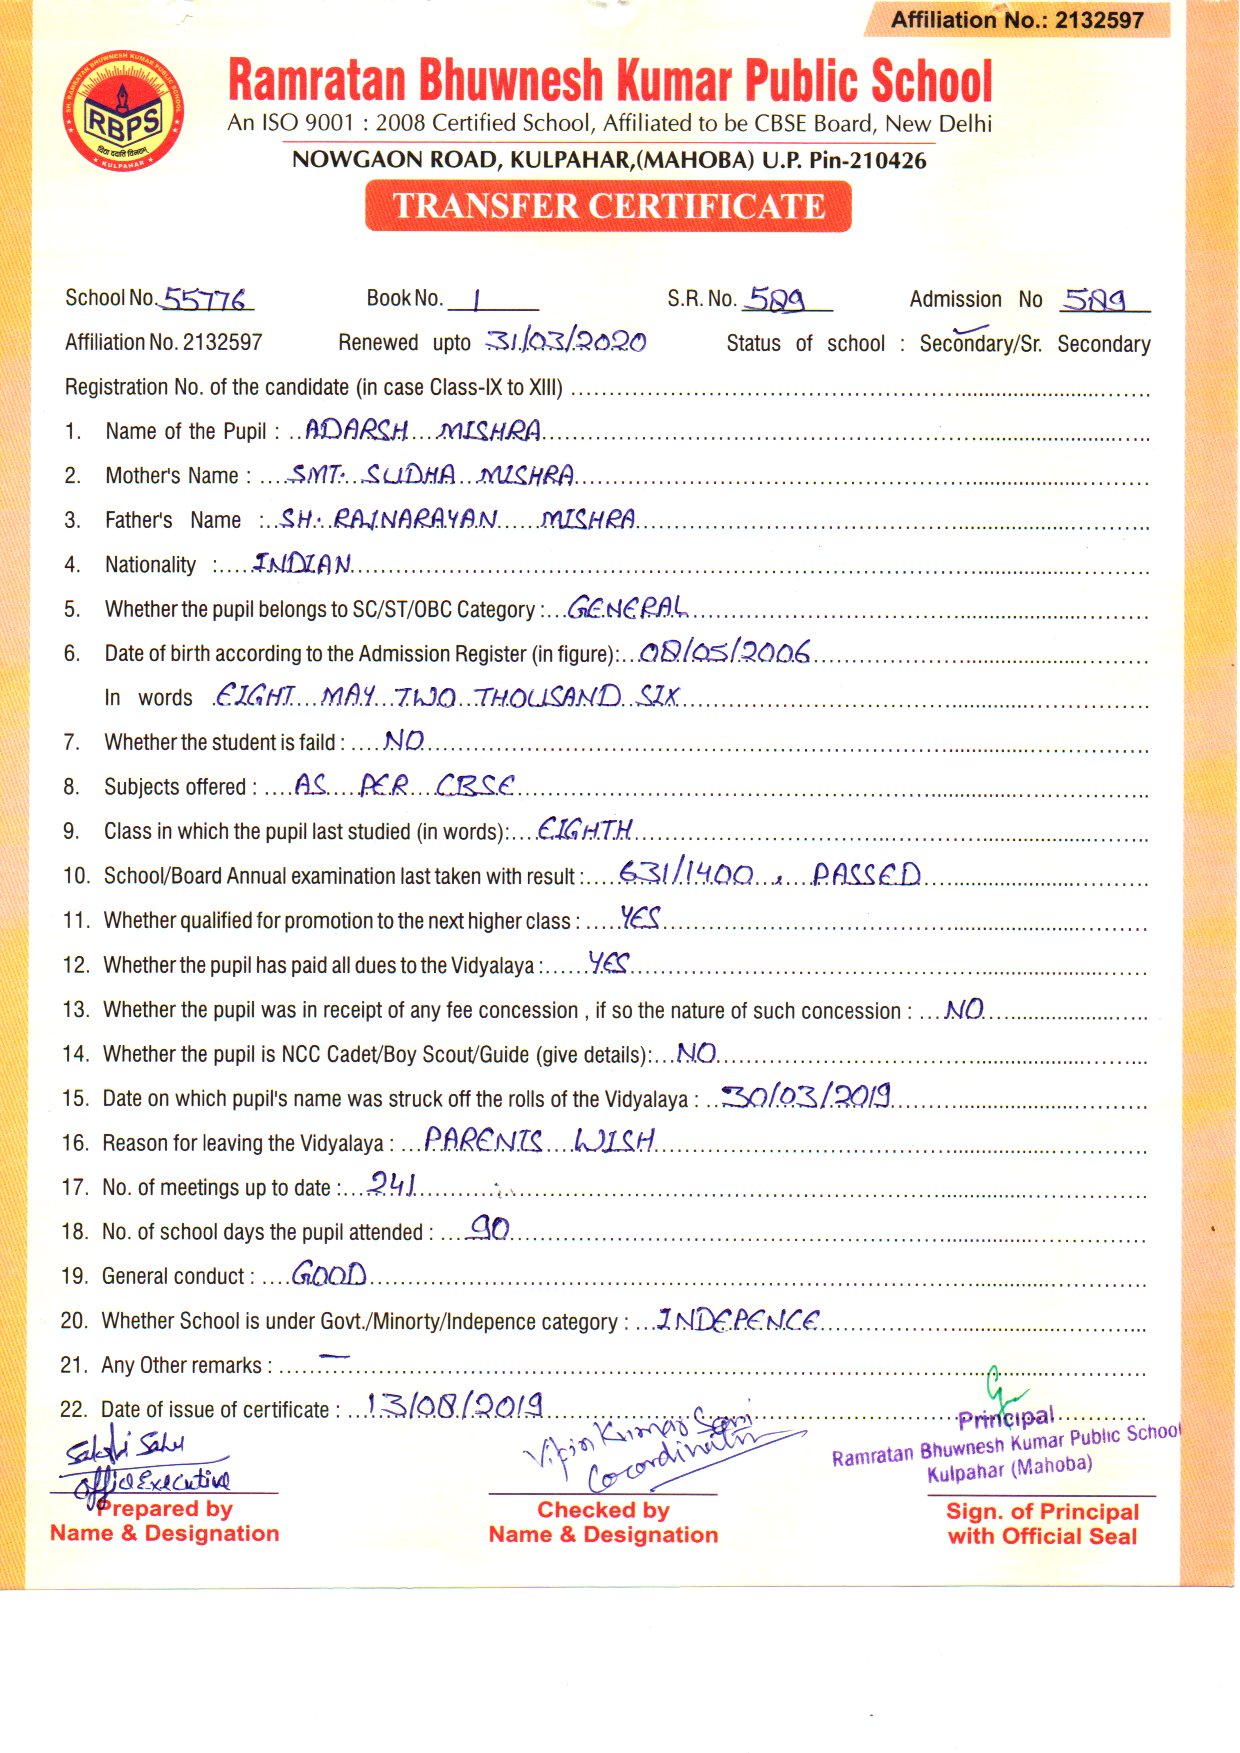 Affiliation No.: 2132597
Ramratan Bhuwnesh Kumar Public School
SH. RAMRATAN BHUWNESH KUMAR PUBLIC SCHOOL
RBPS
KULPAHAR
An ISO 9001 : 2008 Certified School, Affiliated to be CBSE Board, New Delhi
NOWGAON ROAD, KULPAHAR,(MAHOBA) U.P. Pin-210426
TRANSFER CERTIFICATE
School No. 55776 Book No. 1 S.R. No. 589 Admission No 589
Affiliation No. 2132597 Renewed upto 31/03/2020 Status of school : Secondary/Sr. Secondary
Registration No. of the candidate (in case Class-IX to XIII)
1. Name of the Pupil : ADARSH MISHRA
2. Mother's Name : SMT. SUDHA MISHRA
3. Father's Name : SH. RAJNARAYAN MISHRA
4. Nationality : INDIAN
5. Whether the pupil belongs to SC/ST/OBC Category : GENERAL
6. Date of birth according to the Admission Register (in figure): 08/05/2006
In words EIGHT MAY TWO THOUSAND SIX
7. Whether the student is faild : NO
8. Subjects offered : AS PER CBSE
9. Class in which the pupil last studied (in words): EIGHTH
10. School/Board Annual examination last taken with result : 631/1400, PASSED
11. Whether qualified for promotion to the next higher class : YES
12. Whether the pupil has paid all dues to the Vidyalaya : YES
13. Whether the pupil was in receipt of any fee concession , if so the nature of such concession : NO
14. Whether the pupil is NCC Cadet/Boy Scout/Guide (give details): NO
15. Date on which pupil's name was struck off the rolls of the Vidyalaya : 30/03/2019
16. Reason for leaving the Vidyalaya : PARENTS WISH
17. No. of meetings up to date : 241
18. No. of school days the pupil attended : 90
19. General conduct : GOOD
20. Whether School is under Govt./Minorty/Indepence category : INDEPENCE
21. Any Other remarks : —
22. Date of issue of certificate : 13/08/2019
Sakshi Sahu
Office Executive
Vipin Kumar Soni
Coordinator
Principal
Ramratan Bhuwnesh Kumar Public School
Kulpahar (Mahoba)
Prepared by
Name & Designation
Checked by
Name & Designation
Sign. of Principal
with Official Seal